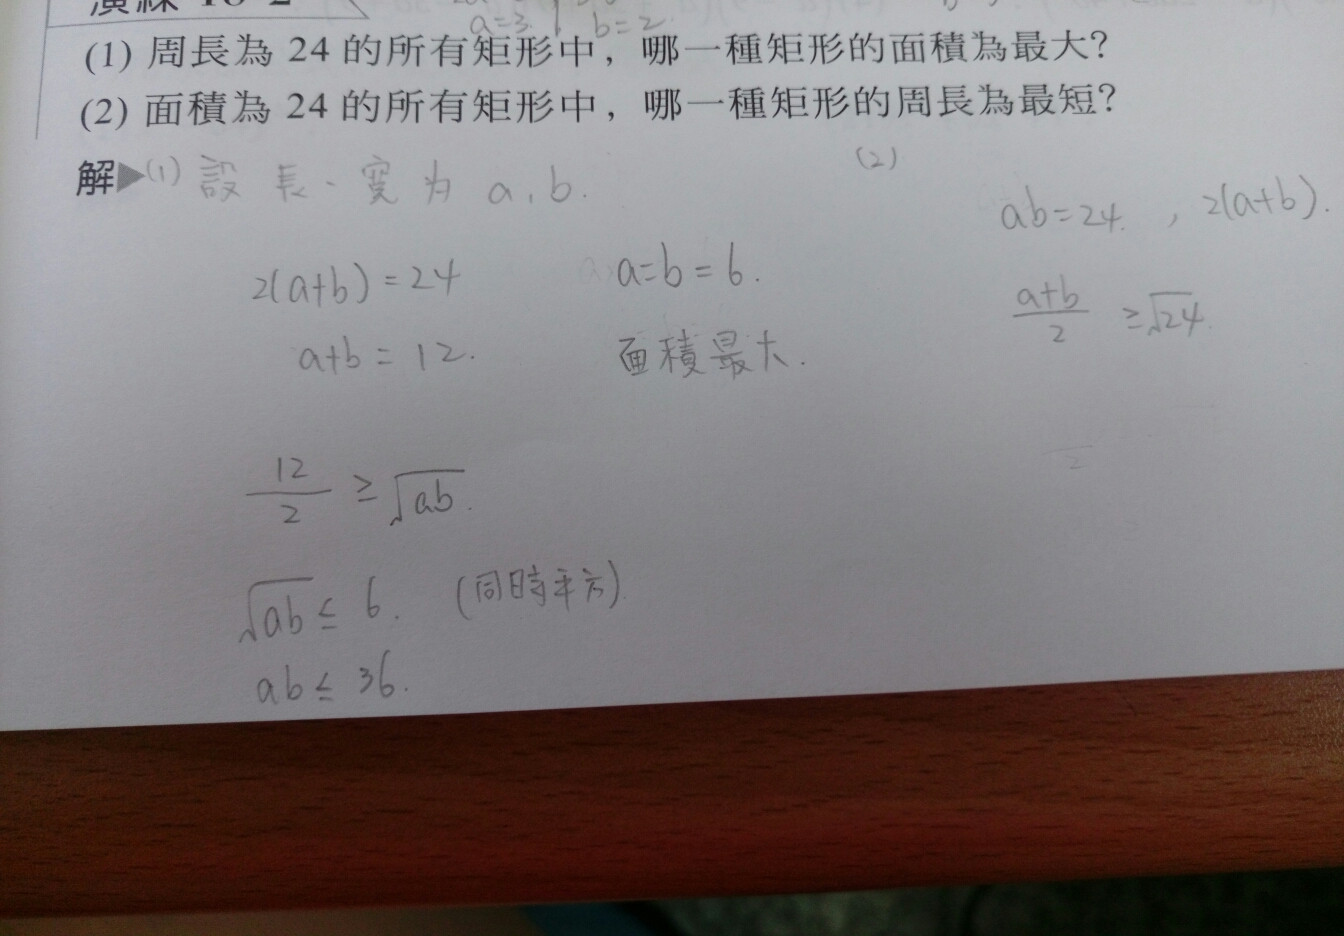 演練 18-2
a=3, b=2.
(1) 周長為 24 的所有矩形中，哪一種矩形的面積為最大?
(2) 面積為 24 的所有矩形中，哪一種矩形的周長為最短?
解▶(1) 設 長、寬 为 a, b.
2(a+b) = 24
a+b = 12.
12/2 ≥ √ab.
√ab ≤ 6. (同時平方)
ab ≤ 36.
a=b=6.
面積最大.
(2)
ab=24. , 2(a+b).
a+b/2 ≥ √24.